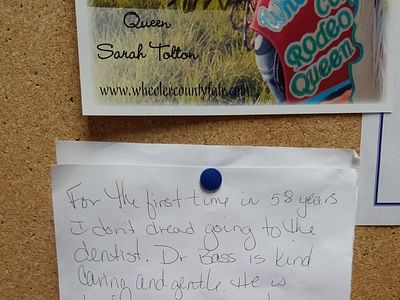 Queen
Sarah Tolton
www.wheelercountyfair.com
Rodeo
Queen
For the first time in 58 years
I don't dread going to the
dentist. Dr Bass is kind
Caring and gentle. He is